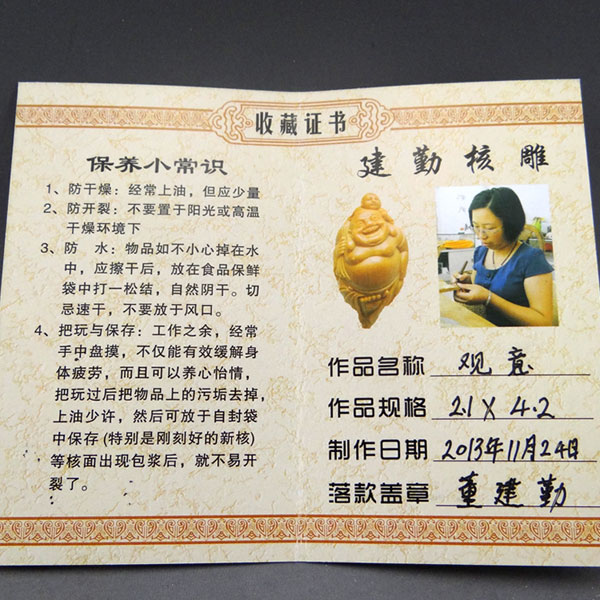 收藏证书
保养小常识
1、防干燥：经常上油，但应少量
2、防开裂：不要置于阳光或高温
干燥环境下
3、防　水：物品如不小心掉在水
中，应擦干后，放在食品保鲜
袋中打一松结，自然阴干。切
忌速干，不要放于风口。
4、把玩与保存：工作之余，经常
手中盘摸，不仅能有效缓解身
体疲劳，而且可以养心怡情，
把玩过后把物品上的污垢去掉，
上油少许，然后可放于自封袋
中保存(特别是刚刻好的新核)
等核面出现包浆后，就不易开
裂了。
建勤核雕
作品名称 观意
作品规格 2.1×4.2
制作日期 2013年11月24日
落款盖章 董建勤